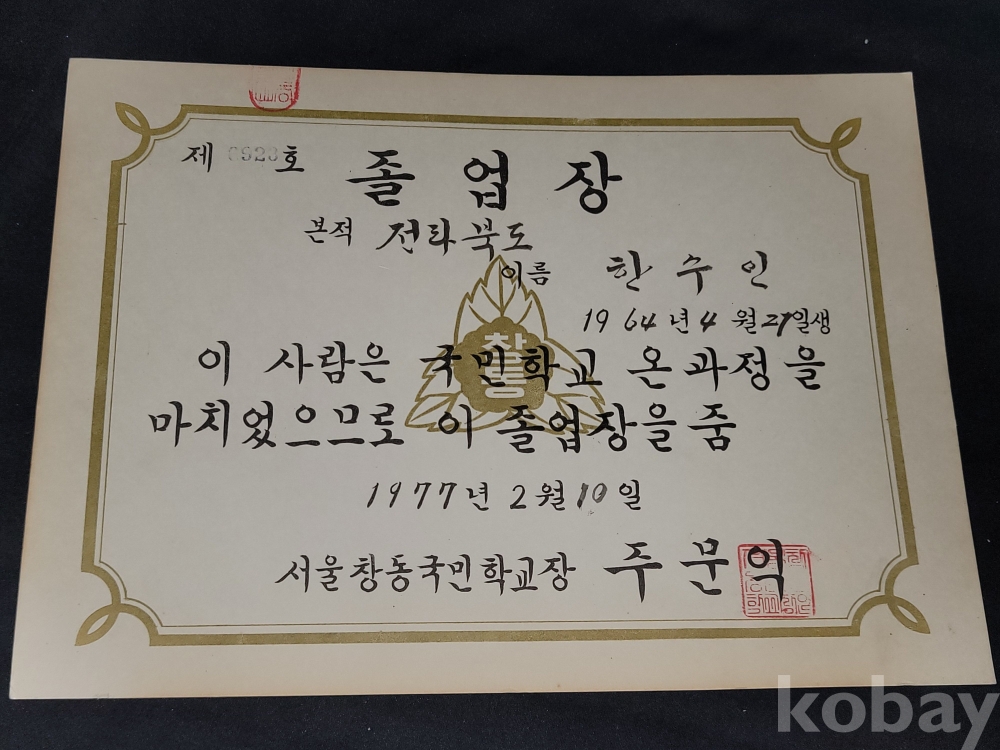 제 호
졸업장
본적 전라북도
이름 한수인
1964년 4월 27일생
창동
이 사람은 국민학교 온과정을
마치었으므로 이 졸업장을 줌
1977년 2월 10일
서울창동국민학교장 주문익
kobay